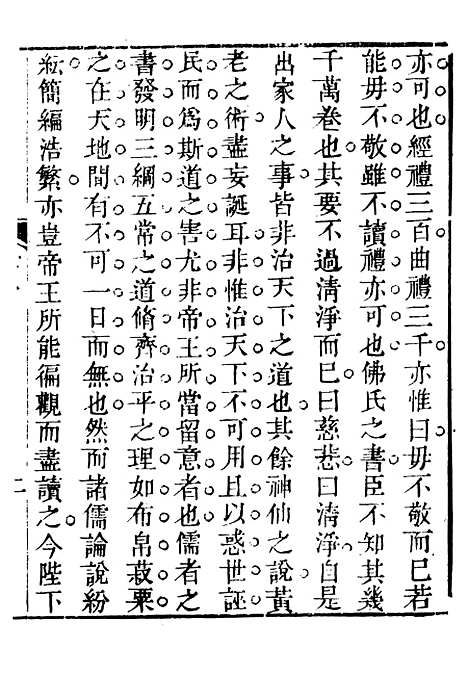 亦可也經禮三百曲禮三千亦惟曰毋不敬而已若
能毋不敬雖不讀禮亦可也佛氏之書臣不知其幾
千萬卷也其要不過清淨而已曰慈悲曰清淨自是
出家人之事皆非治天下之道也其餘神仙之說黃
老之術盡妄誕耳非惟治天下不可用且以惑世誣
民而爲斯道之害尤非帝王所當留意者也儒者之
書發明三綱五常之道脩齊治平之理如布帛菽粟
之在天地間有不可一日而無也然而諸儒論說紛
紜簡編浩繁亦豈帝王所能徧觀而盡讀之今陛下
二